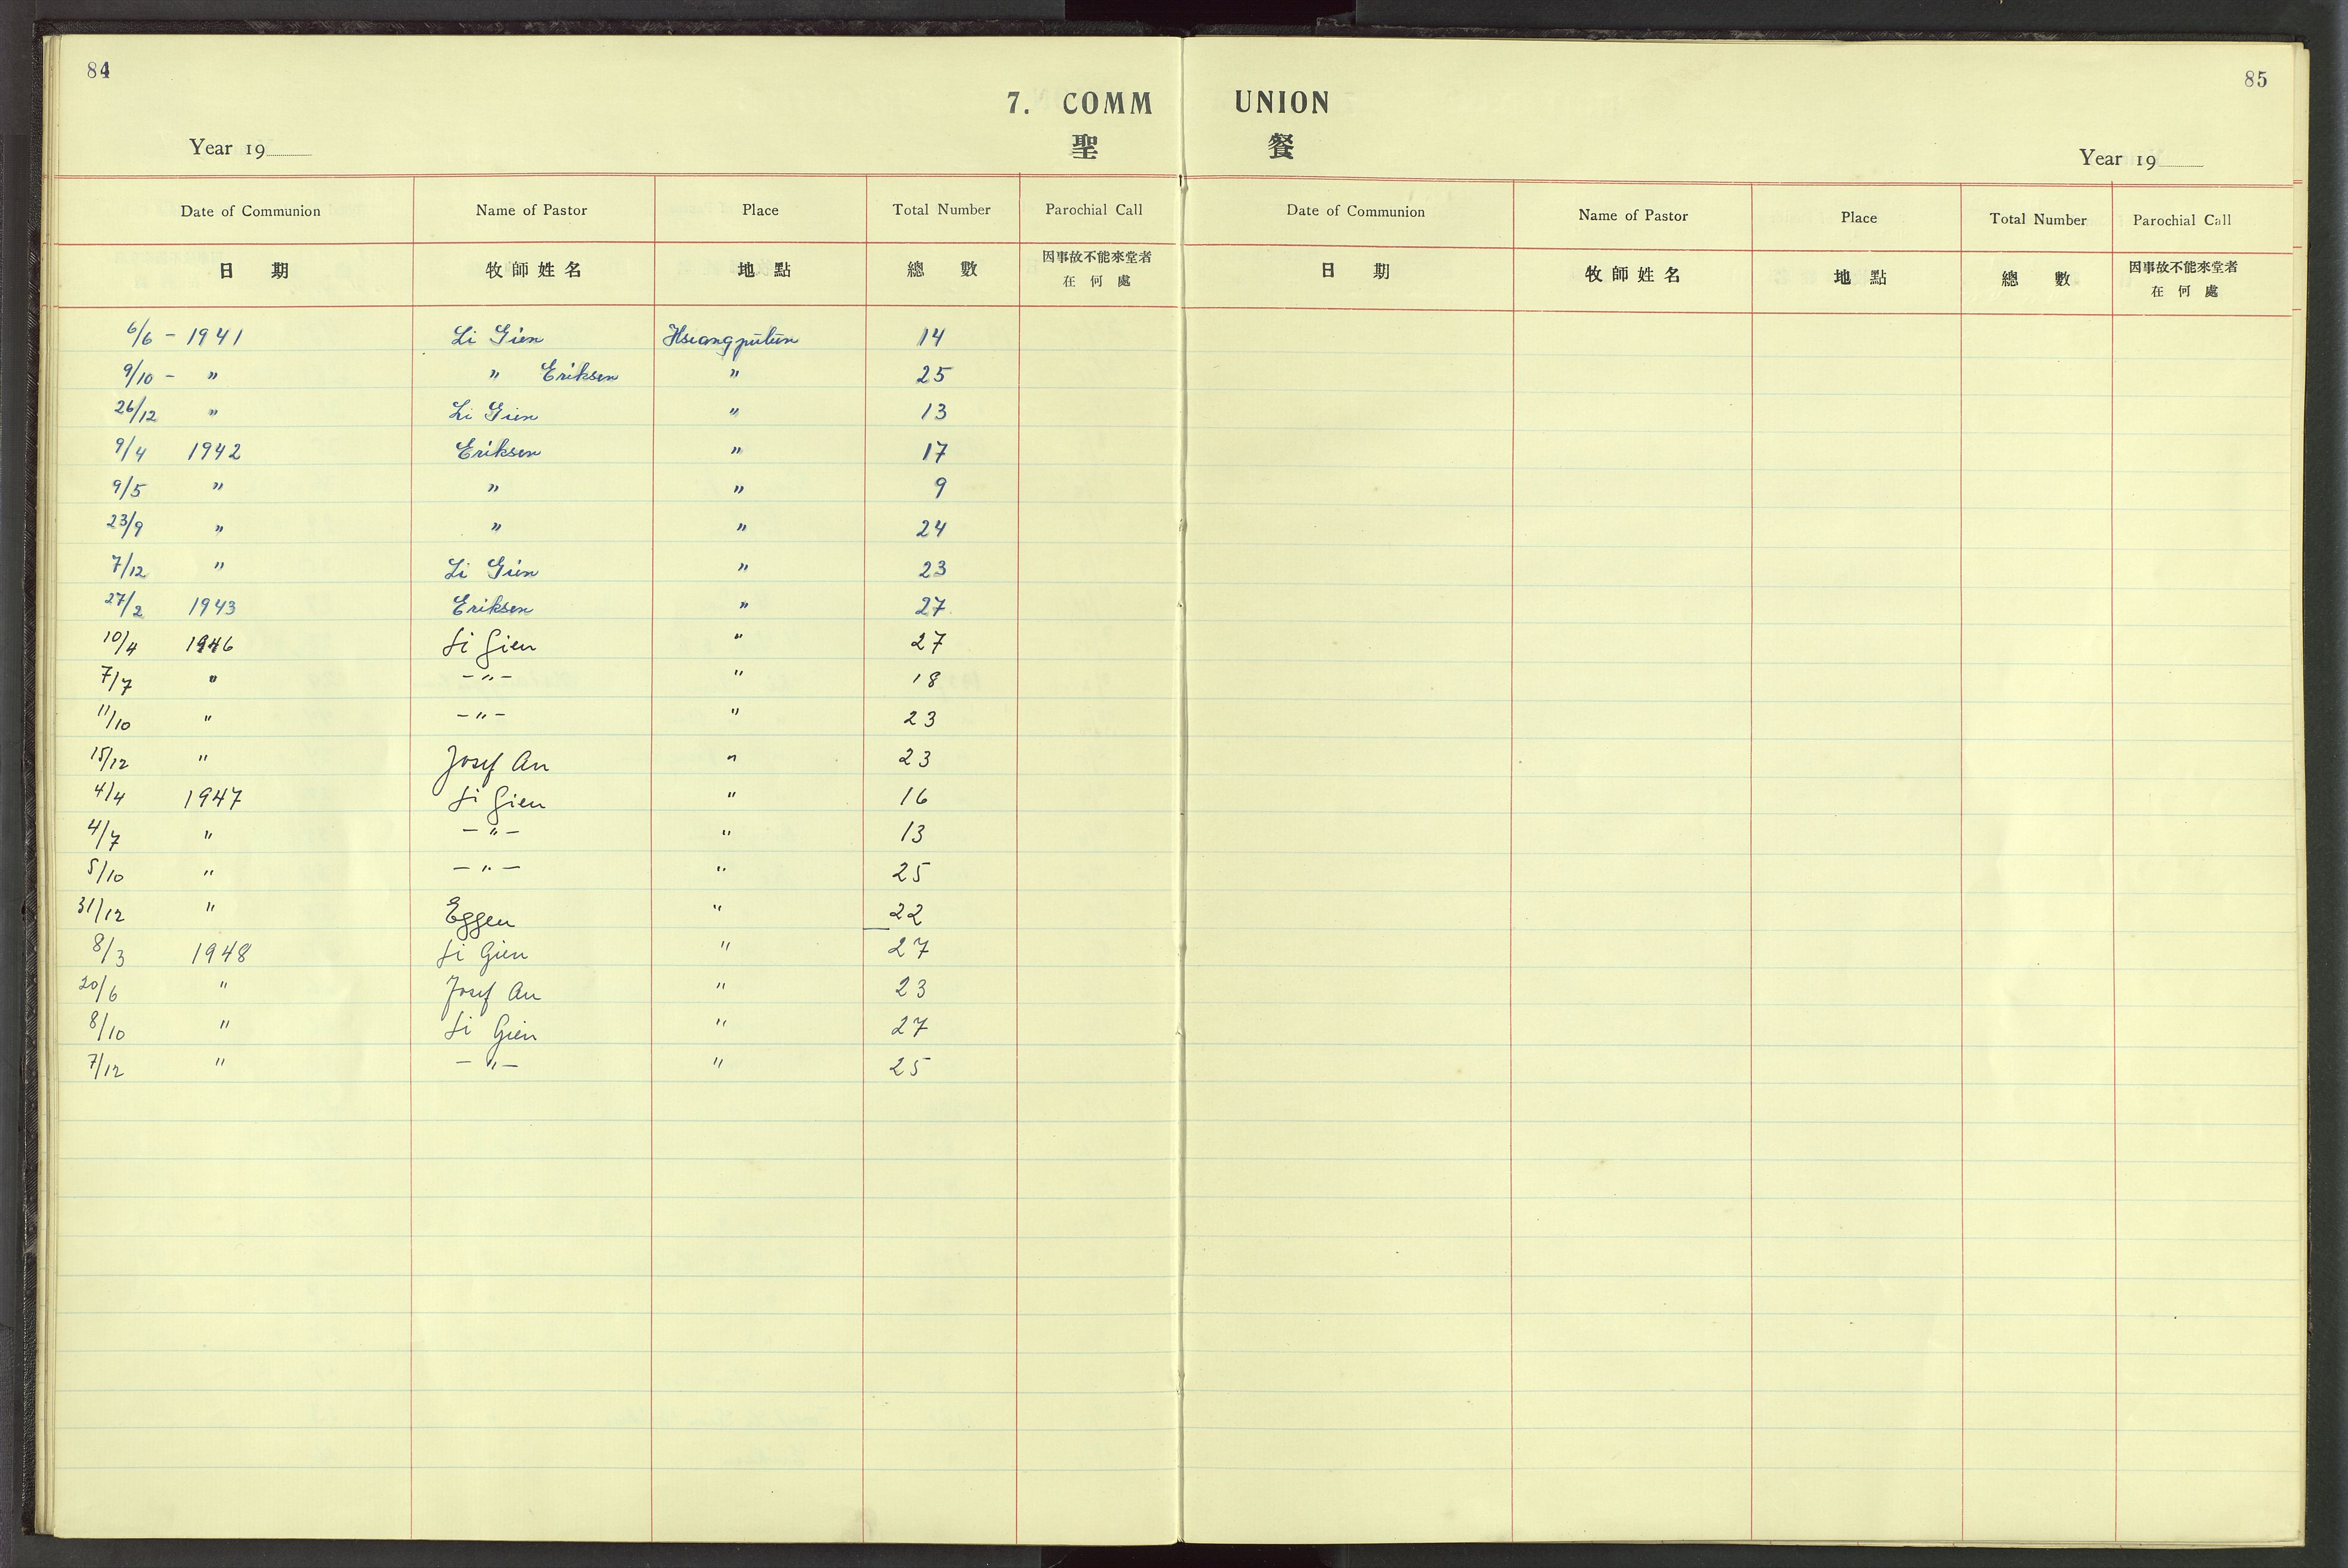 84
85
7. COMM UNION
聖 餐
Year 19
Year 19
Date of Communion Name of Pastor Place Total Number Parochial Call
日 期 牧師姓名 地點 總 數 因事故不能來堂者
在何處
Date of Communion Name of Pastor Place Total Number Parochial Call
日 期 牧師姓名 地點 總 數 因事故不能來堂者
在何處
6/6 - 1941 Li Gien Hsiangputun 14
9/10 - " " Eriksen " 25
26/12 " Li Gien " 13
9/4 1942 Eriksen " 17
9/5 " " " 9
23/9 " " " 24
7/12 " Li Gien " 23
27/2 1943 Eriksen " 27
10/4 1946 Li Gien " 27
7/7 " -"- " 18
11/10 " -"- " 23
15/12 " Josef An " 23
4/4 1947 Li Gien " 16
4/7 " -"- " 13
5/10 " -"- " 25
31/12 " Eggen " 22
8/3 1948 Li Gien " 27
20/6 " Josef An " 23
8/10 " Li Gien " 27
7/12 " -"- " 25